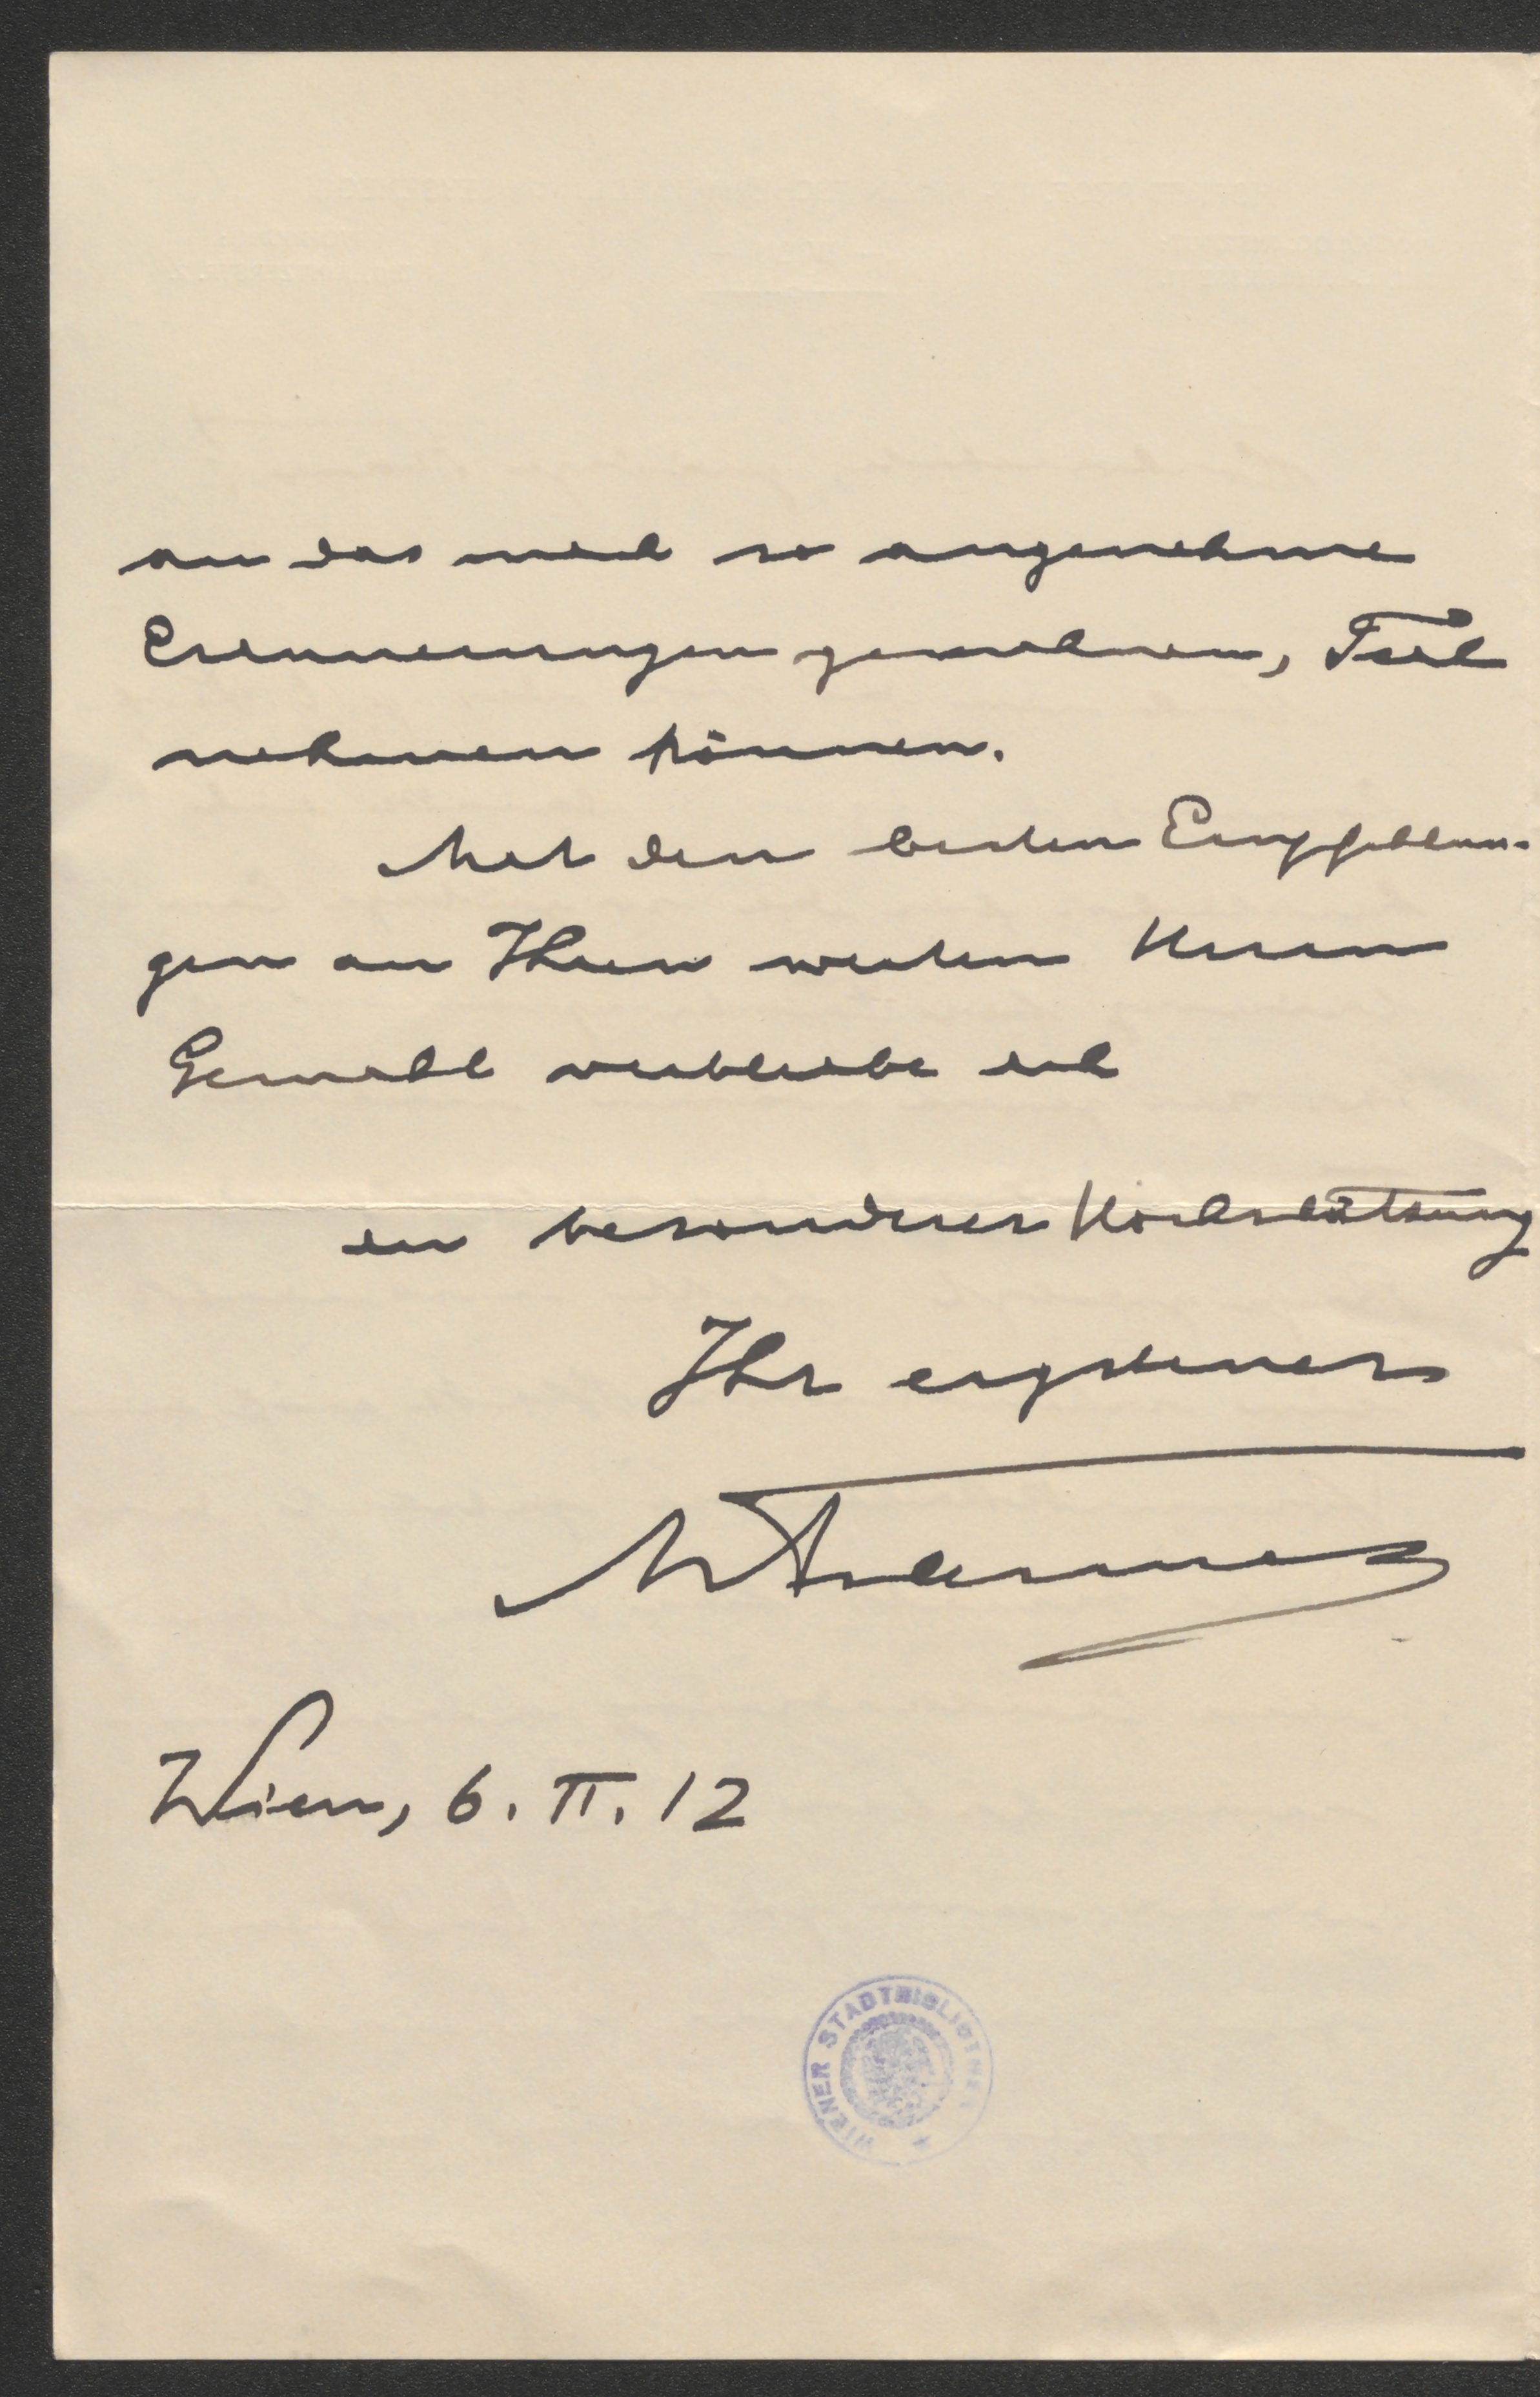 an das mich so angenehme
Erinnerungen gemahnen, Teil
nehmen können.
Mit den besten Empfehlun-
gen an Ihren werten Herrn
Gemahl verbleibe ich
in besonderer Hochschätzung
Ihr ergebener
Wien, 6. II. 12
WIENER STADTBIBLIOTHEK